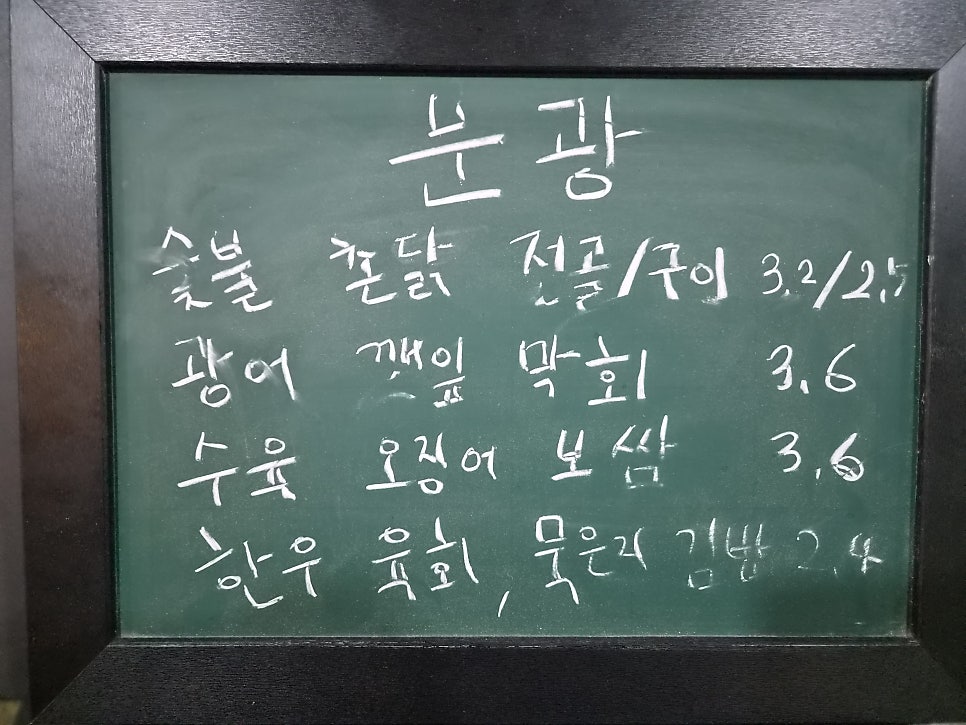 분광
숯불 촌닭 전골/구이 3.2/2.5
광어 깻잎 막회 3.6
수육 오징어 보쌈 3.6
한우 육회, 묵은지 김밥 2.4